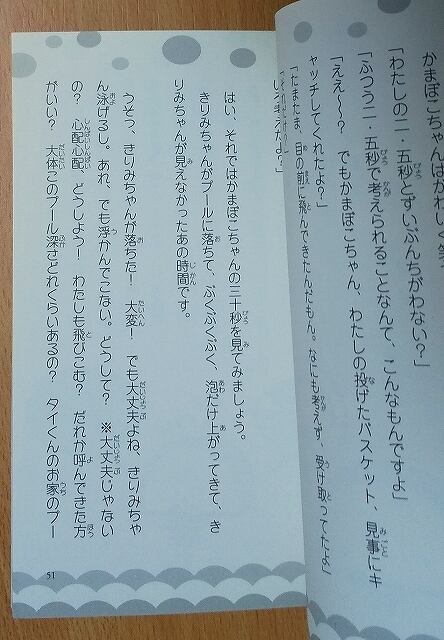 かまぼこちゃんはかわいく笑う
「わたしの二・五秒とずいぶんちがわない？」
「ふつう二・五秒で考えられることなんて、こんなもんですよ」
「ええ～～？　でもかまぼこちゃん、わたしの投げたバスケット、見事にキ
ャッチしてくれたよ？」
「たまたま、目の前に飛んできたんだもん。なにも考えず、受け取ってたよ」
はい、それではかまぼこちゃんの三十秒を見てみましょう。
きりみちゃんがプールに落ちて、ぶくぶくぶく、泡だけ上がってきて、き
りみちゃんが見えなかったあの時間です。
うそっ、きりみちゃんが落ちた！　大変！　でも大丈夫よね、きりみちゃ
ん泳げるし。あれ、でも浮かんでこない。どうして？　※大丈夫じゃない
の？　心配心配　どうしよう！　わたしも飛びこむ？　だれか呼んできた方
がいい？　大体このプール深さどれくらいあるの？　タイくんのお家のプー
51